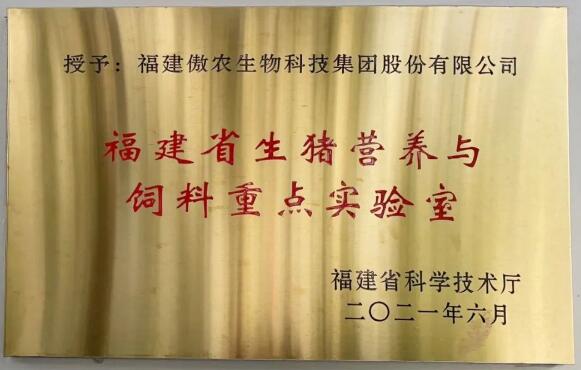 授予：福建傲农生物科技集团股份有限公司
福建省生猪营养与
饲料重点实验室
福建省科学技术厅
二〇二一年六月